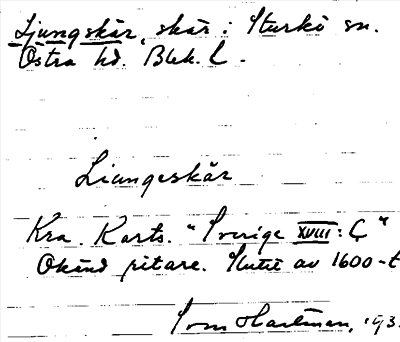 Ljungskär, skär i Sturkö sn.
Östra hd. Blek. l.
Liungeskär
Kra. Karts. "Sverige XVIII: Ç"
Okänd ritare. Slutet av 1600-t
Sven Hartman, 193